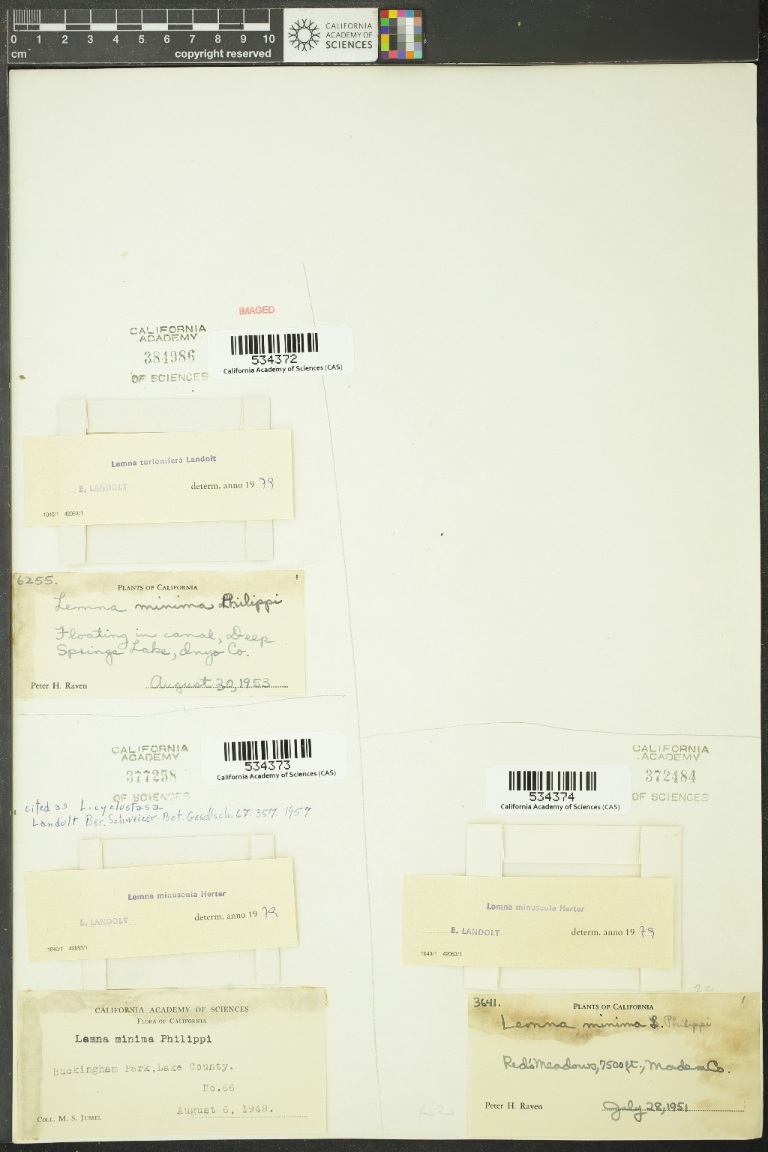 0 1 2 3 4 5 6 7 8 9 10
cm
copyright reserved
CALIFORNIA
ACADEMY OF
SCIENCES
IMAGED
CALIFORNIA
ACADEMY
384986
OF SCIENCES
534372
California Academy of Sciences (CAS)
Lemna turionifera Landolt
E. LANDOLT
determ. anno 1979
6255.
PLANTS OF CALIFORNIA
Lemna minima Philippi
Floating in canal, Deep
Springs Lake, Inyo Co.
Peter H. Raven
August 30, 1953
CALIFORNIA
ACADEMY
377258
OF SCIENCES
534373
California Academy of Sciences (CAS)
cited as L. cyclostasa
Landolt Ber. Schweizer. Bot. Gesellsch. 67: 357. 1957
Lemna minuscula Herter
E. LANDOLT
determ. anno 1979
CALIFORNIA ACADEMY OF SCIENCES
FLORA OF CALIFORNIA
Lemna minima Philippi
Buckingham Park, Lake County.
No.66
August 6, 1948.
COLL. M. S. JUSSEL
CALIFORNIA
ACADEMY
372484
OF SCIENCES
534374
California Academy of Sciences (CAS)
Lemna minuscula Herter
E. LANDOLT
determ. anno 1979
3641.
PLANTS OF CALIFORNIA
Lemna minima L. Philippi
Red's Meadows, 7500 ft., Madera Co.
Peter H. Raven
July 28, 1951